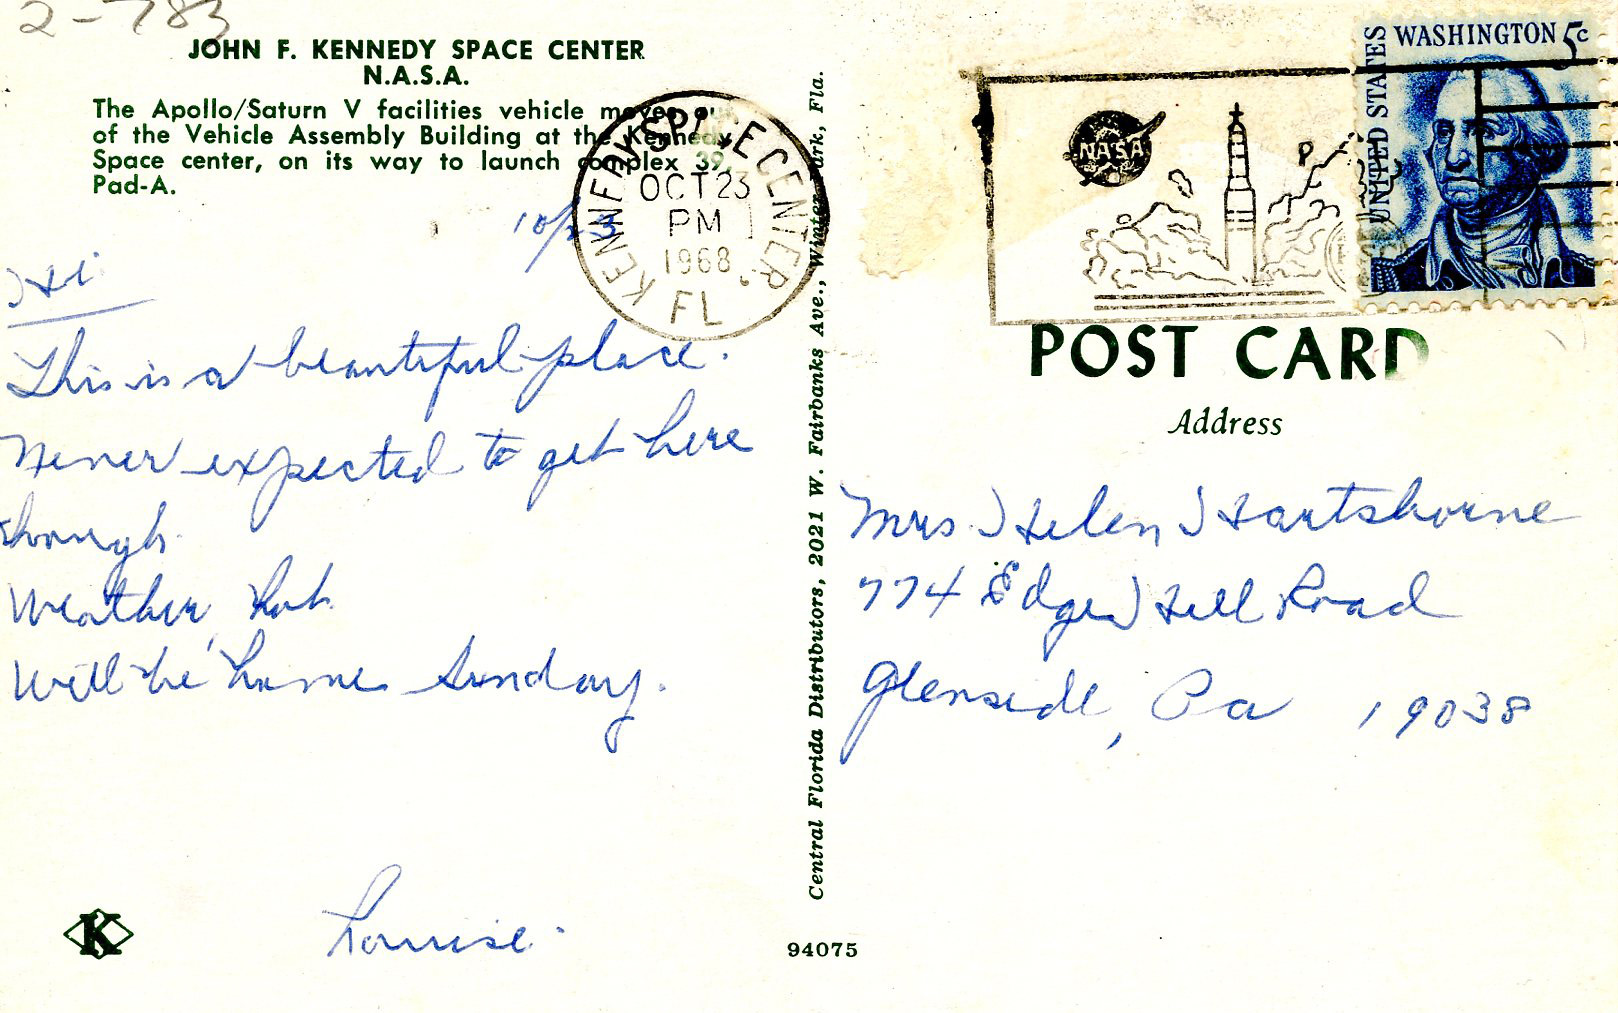 2-783
JOHN F. KENNEDY SPACE CENTER
N.A.S.A.
The Apollo/Saturn V facilities vehicle moves out
of the Vehicle Assembly Building at the Kennedy
Space center, on its way to launch complex 39,
Pad-A.
10/23
Hi
This is a beautiful place.
Never expected to get here
though.
Weather, hot.
Will be home Sunday.
Louise.
K
KENNEDY SPACE CENTER
OCT 23
PM
1968
FL
Central Florida Distributors, 2021 W. Fairbanks Ave., Winter Park, Fla.
94075
NASA
UNITED STATES
WASHINGTON 5c
POST CARD
Address
Mrs Helen Hartshorne
774 Edge Hill Road
Glenside, Pa 19038